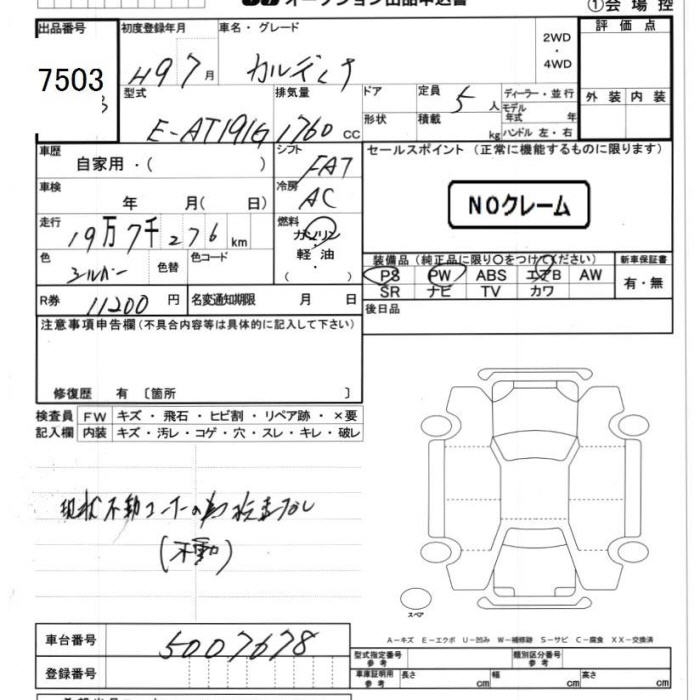 オークション出品申込書 ①会場控
出品番号 初度登録年月 車名・グレード 2WD・4WD 評価点
7503 H9 7月 カルディナ
型式 排気量 ドア 定員 5人 ディーラー・並行 外装 内装
E-AT191G 1760cc 形状 積載 kg モデル年式 年 ハンドル 左・右
車歴 シフト セールスポイント (正常に機能するものに限ります)
自家用・( ) FAT
車検 冷房 NOクレーム
年 月( 日) AC
走行 燃料
19万7千276km ガソリン
軽油
色 色替 色コード ・( )
シルバー
装備品(純正品に限り○をつけてください) 新車保証書
PS PW ABS エアB AW 有・無
SR ナビ TV カワ
R券 11200円 名変通知期限 月 日 後日品
注意事項申告欄(不具合内容等は具体的に記入して下さい)
修復歴 有 〔箇所 〕
検査員 FW キズ・飛石・ヒビ割・リペア跡・×要
記入欄 内装 キズ・汚レ・コゲ・穴・スレ・キレ・破レ
現状不動コーナーの為検査なし
(不動)
スペア
A-キズ E-エクボ U-凹み W-補修跡 S-サビ C-腐食 XX-交換済
車台番号 5007678
型式指定番号 参考 類別区分番号 参考
登録番号 車庫証明用 参考 長さ cm 幅 cm 高さ cm